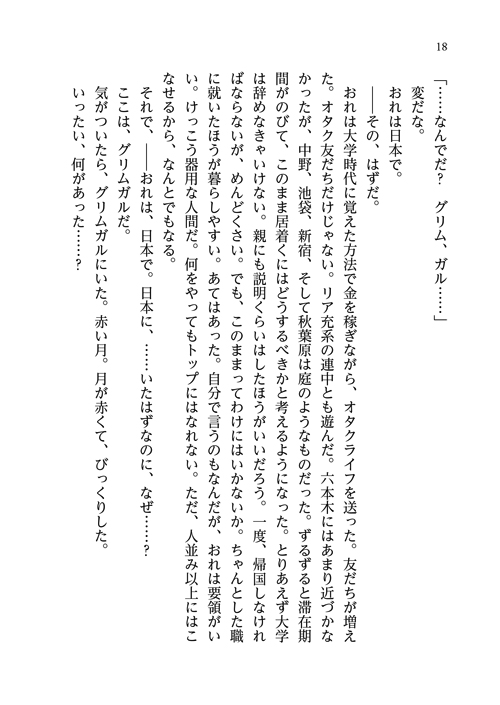 18
「……なんでだ？　グリム、ガル……」
　変だな。
　おれは日本で。
　――その、はずだ。
　おれは大学時代に覚えた方法で金を稼ぎながら、オタクライフを送った。友だちが増え
た。オタク友だちだけじゃない。リア充系の連中とも遊んだ。六本木にはあまり近づかな
かったが、中野、池袋、新宿、そして秋葉原は庭のようなものだった。ずるずると滞在期
間がのびて、このまま居着くにはどうするべきかと考えるようになった。とりあえず大学
は辞めなきゃいけない。親にも説明くらいはしたほうがいいだろう。一度、帰国しなけれ
ばならないが、めんどくさい。でも、このままってわけにはいかないか。ちゃんとした職
に就いたほうが暮らしやすい。あてはあった。自分で言うのもなんだが、おれは要領がい
い。けっこう器用な人間だ。何をやってもトップにはなれない。ただ、人並み以上にはこ
なせるから、なんとでもなる。
　それで、――おれは、日本で。日本に、……いたはずなのに、なぜ……？
　ここは、グリムガルだ。
　気がついたら、グリムガルにいた。赤い月。月が赤くて、びっくりした。
　いったい、何があった……？